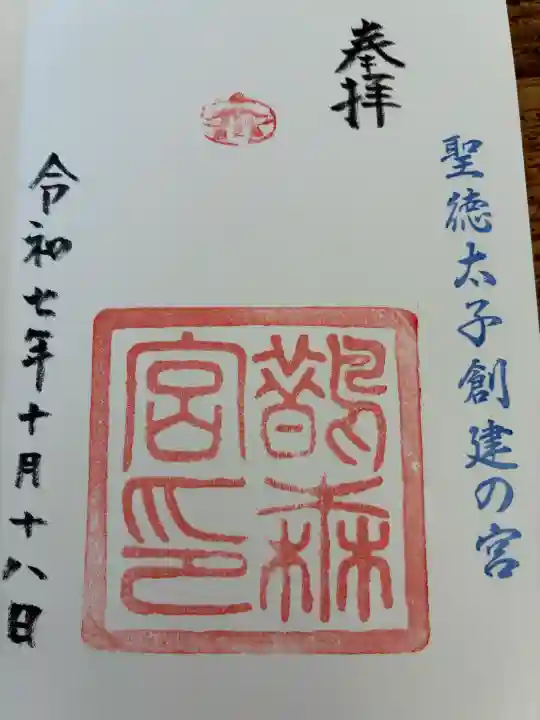 聖徳太子創建の宮
奉拝
鵲森
宮印
令和七年十月十八日